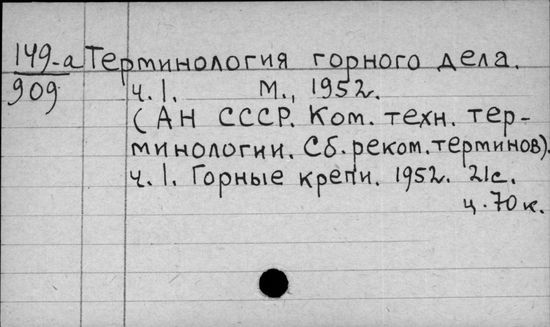 149-а Терминология горного дела.
909 ч. 1. М., 1952.
(АН СССР. Ком. техн. тер-
минологии. Сб. реком. терминов).
ч. 1. Горные крепи. 1952. 21с.
ц. 70 к.